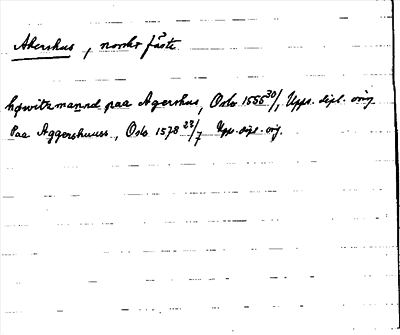 Akershus, norskt fäste
høwitzmannd paa Agershus, Oslo 1555 30/1, Upps. dipl. orig.
Paa Aggershuuss, Oslo 1578 23/7 Upps. dipl. orig.